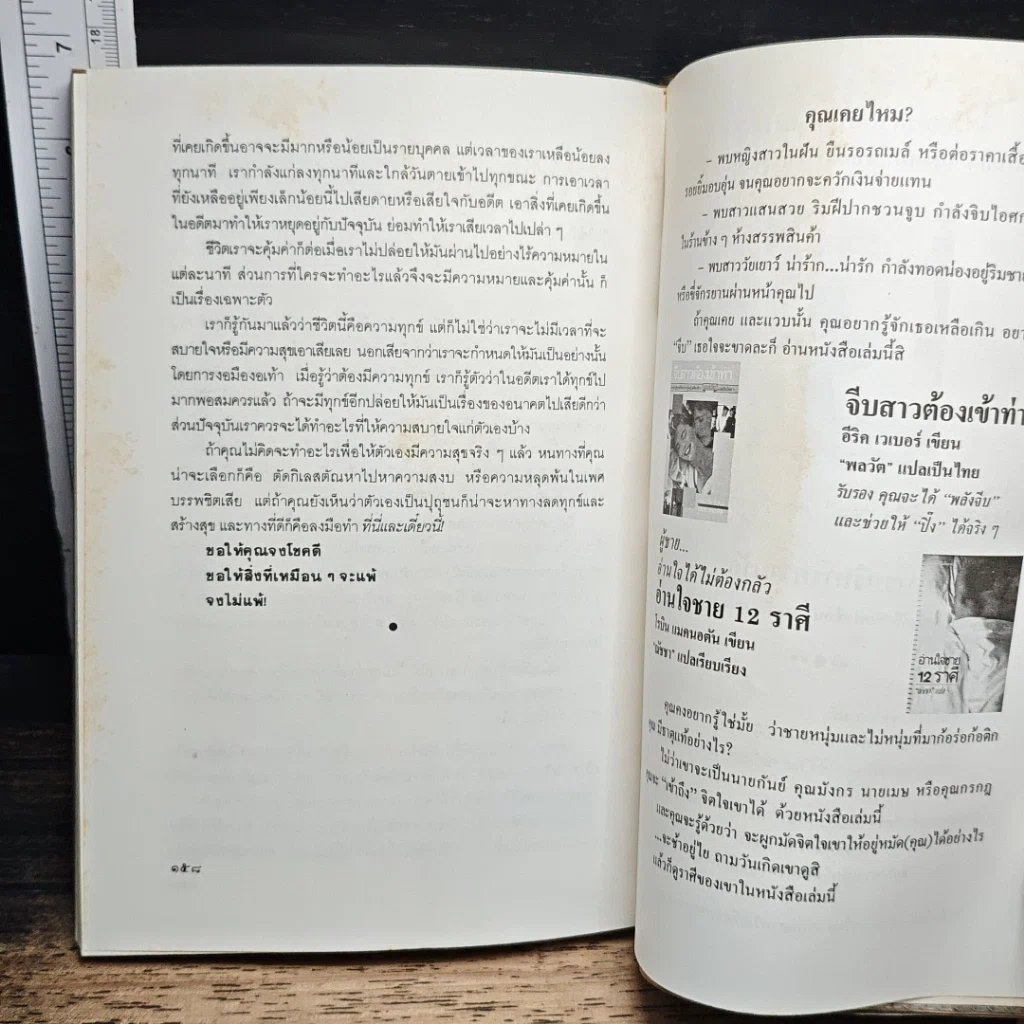 7
18
ที่เคยเกิดขึ้นอาจจะมีมากหรือน้อยเป็นรายบุคคล แต่เวลาของเราเหลือน้อยลง
ทุกนาที เรากำลังแก่ลงทุกนาทีและใกล้วันตายเข้าไปทุกขณะ การเอาเวลา
ที่ยังเหลืออยู่เพียงเล็กน้อยนี้ไปเสียดายหรือเสียใจกับอดีต เอาสิ่งที่เคยเกิดขึ้น
ในอดีตมาทำให้เราหยุดอยู่กับปัจจุบัน ย่อมทำให้เราเสียเวลาไปเปล่า ๆ
ชีวิตเราจะคุ้มค่าก็ต่อเมื่อเราไม่ปล่อยให้มันผ่านไปอย่างไร้ความหมายใน
แต่ละนาที ส่วนการที่ใครจะทำอะไรแล้วจึงจะมีความหมายและคุ้มค่านั้น ก็
เป็นเรื่องเฉพาะตัว
เราก็รู้กันมาแล้วว่าชีวิตนี้คือความทุกข์ แต่ก็ไม่ใช่ว่าเราจะไม่มีเวลาที่จะ
สบายใจหรือมีความสุขเอาเสียเลย นอกเสียจากว่าเราจะกำหนดให้มันเป็นอย่างนั้น
โดยการงอมืองอเท้า เมื่อรู้ว่าต้องมีความทุกข์ เราก็รู้ตัวว่าในอดีตเราได้ทุกข์ไป
มากพอสมควรแล้ว ถ้าจะมีทุกข์อีกปล่อยให้มันเป็นเรื่องของอนาคตไปเสียดีกว่า
ส่วนปัจจุบันเราควรจะได้ทำอะไรที่ให้ความสบายใจแก่ตัวเองบ้าง
ถ้าคุณไม่คิดจะทำอะไรเพื่อให้ตัวเองมีความสุขจริง ๆ แล้ว หนทางที่คุณ
น่าจะเลือกก็คือ ตัดกิเลสตัณหาไปหาความสงบ หรือความหลุดพ้นในเพศ
บรรพชิตเสีย แต่ถ้าคุณยังเห็นว่าตัวเองเป็นปุถุชนก็น่าจะหาทางลดทุกข์และ
สร้างสุข และทางที่ดีก็คือลงมือทำ ที่นี่และเดี๋ยวนี้!
ขอให้คุณจงโชคดี
ขอให้สิ่งที่เหมือน ๆ จะแพ้
จงไม่แพ้!
๑๕๘
คุณเคยไหม?
– พบหญิงสาวในฝัน ยืนรอรถเมล์ หรือต่อราคาเสื้อ
รอยยิ้มอบอุ่น จนคุณอยากจะควักเงินจ่ายแทน
– พบสาวแสนสวย ริมฝีปากชวนจูบ กำลังจิบไอศก
ในร้านข้าง ๆ ห้างสรรพสินค้า
– พบสาววัยเยาว์ น่าร้าก...น่ารัก กำลังทอดน่องอยู่ริมชาย
หรือขี่จักรยานผ่านหน้าคุณไป
ถ้าคุณเคย และแวบนั้น คุณอยากรู้จักเธอเหลือเกิน อยา
“จีบ” เธอใจจะขาดละก็ อ่านหนังสือเล่มนี้สิ
จีบสาวต้องเข้าท่า
จีบสาวต้องเข้าท่า
อีริค เวเบอร์ เขียน
“พลวัต” แปลเป็นไทย
รับรอง คุณจะได้ “พลังจีบ”
และช่วยให้ “ปิ๊ง” ได้จริง ๆ
ผู้ชาย...
อ่านใจได้ไม่ต้องกลัว
อ่านใจชาย 12 ราศี
โรบิน แมคนอตัน เขียน
“ณัชชา” แปลเรียบเรียง
อ่านใจชาย
12 ราศี
คุณคงอยากรู้ใช่มั้ย ว่าชายหนุ่มและไม่หนุ่มที่มาก้อร่อก้อติก
คุณ มีธาตุแท้อย่างไร?
ไม่ว่าเขาจะเป็นนายกันย์ คุณมังกร นายเมษ หรือคุณกรกฎ
คุณจะ “เข้าถึง” จิตใจเขาได้ ด้วยหนังสือเล่มนี้
และคุณจะรู้ด้วยว่า จะผูกมัดจิตใจเขาให้อยู่หมัด(คุณ)ได้อย่างไร
...จะช้าอยู่ไย ถามวันเกิดเขาดูสิ
แล้วก็ดูราศีของเขาในหนังสือเล่มนี้